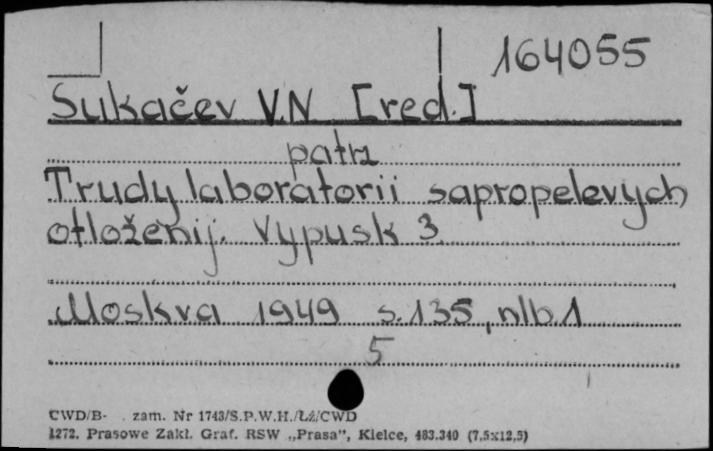 164055
Sukačev V.N [red.]
patrz
Trudy laboratorii sapropelevych
otloženij. Vypusk 3
Moskva 1949 s.135, nlb.1
5
CWD/B- . zam. Nr 1743/S.P.W.H./Łź/CWD
1272. Prasowe Zakł. Graf. RSW „Prasa”, Kielce, 483.340 (7,5x12,5)